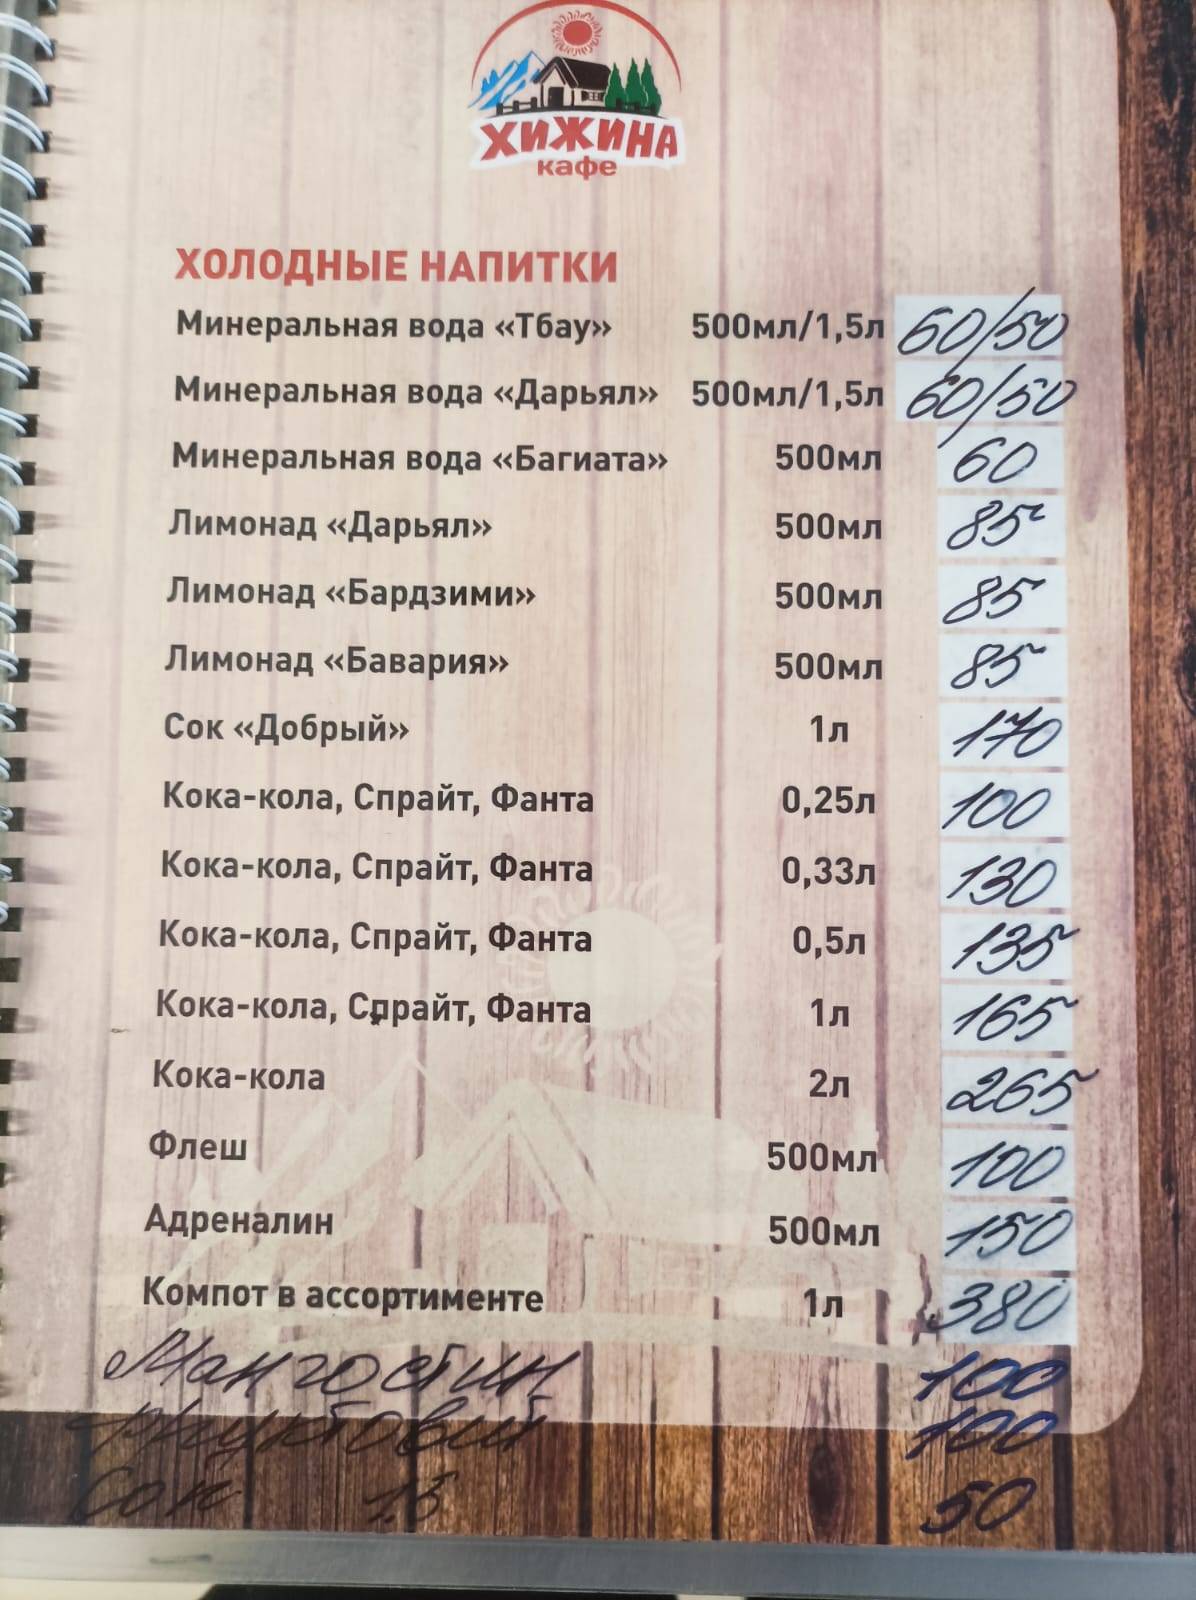 ХИЖИНА
кафе
ХОЛОДНЫЕ НАПИТКИ
Минеральная вода «Тбау» 500мл/1,5л 60/50
Минеральная вода «Дарьял» 500мл/1,5л 60/50
Минеральная вода «Багиата» 500мл 60
Лимонад «Дарьял» 500мл 85
Лимонад «Бардзими» 500мл 85
Лимонад «Бавария» 500мл 85
Сок «Добрый» 1л 170
Кока-кола, Спрайт, Фанта 0,25л 100
Кока-кола, Спрайт, Фанта 0,33л 130
Кока-кола, Спрайт, Фанта 0,5л 135
Кока-кола, Спрайт, Фанта 1л 165
Кока-кола 2л 265
Флеш 500мл 100
Адреналин 500мл 150
Компот в ассортименте 1л 380
Мангостин 100
100
Сок 50